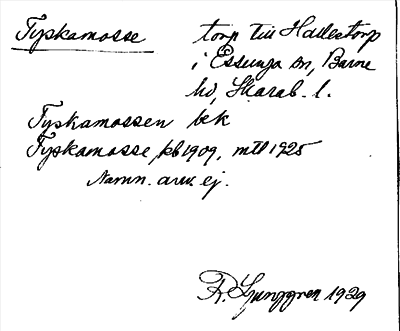 Tyskamosse torp till Hallestorp
i Essunga sn, Barne
hd, Skarab. l.
Tyskamossen bek
Tyskamosse, kb 1909, mtl 1925
Namn. anv. ej.
R. Ljunggren 1929